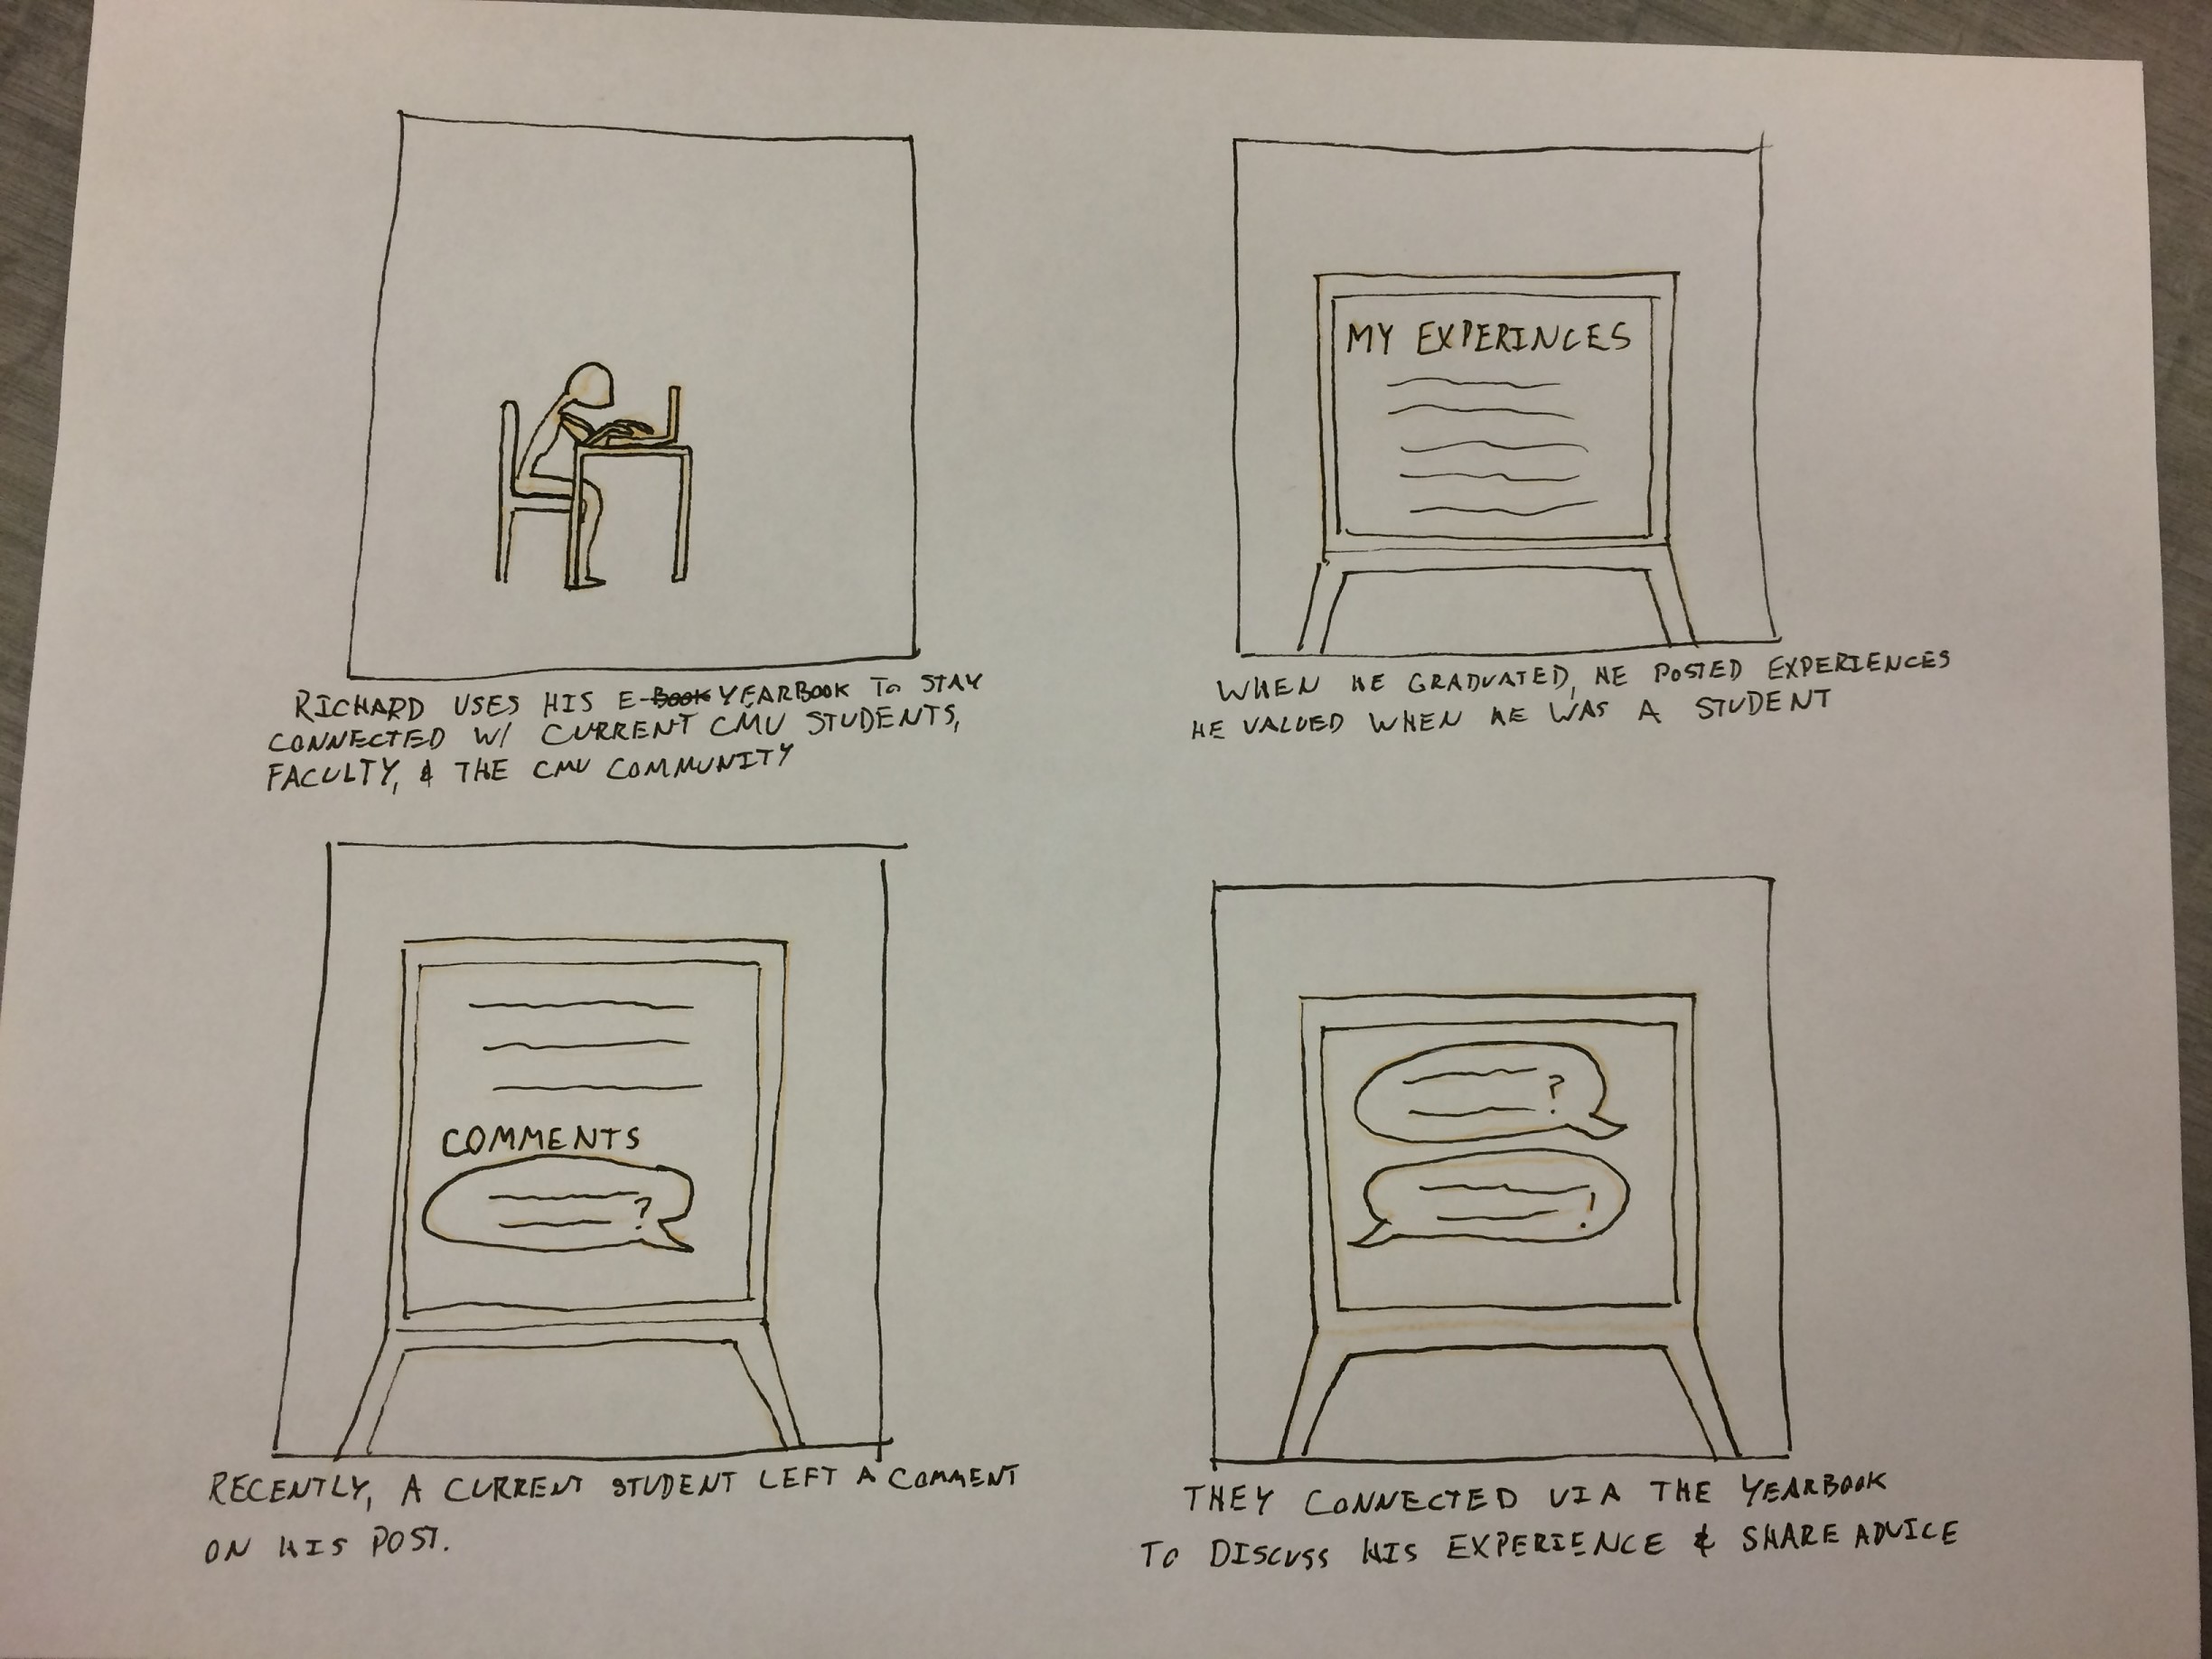 RICHARD USES HIS E-BOOK YEARBOOK TO STAY
CONNECTED W/ CURRENT CMU STUDENTS,
FACULTY, & THE CMU COMMUNITY
MY EXPERINCES
WHEN HE GRADUATED, HE POSTED EXPERIENCES
HE VALUED WHEN HE WAS A STUDENT
COMMENTS
?
RECENTLY, A CURRENT STUDENT LEFT A COMMENT
ON HIS POST.
?
!
THEY CONNECTED VIA THE YEARBOOK
TO DISCUSS HIS EXPERIENCE & SHARE ADVICE